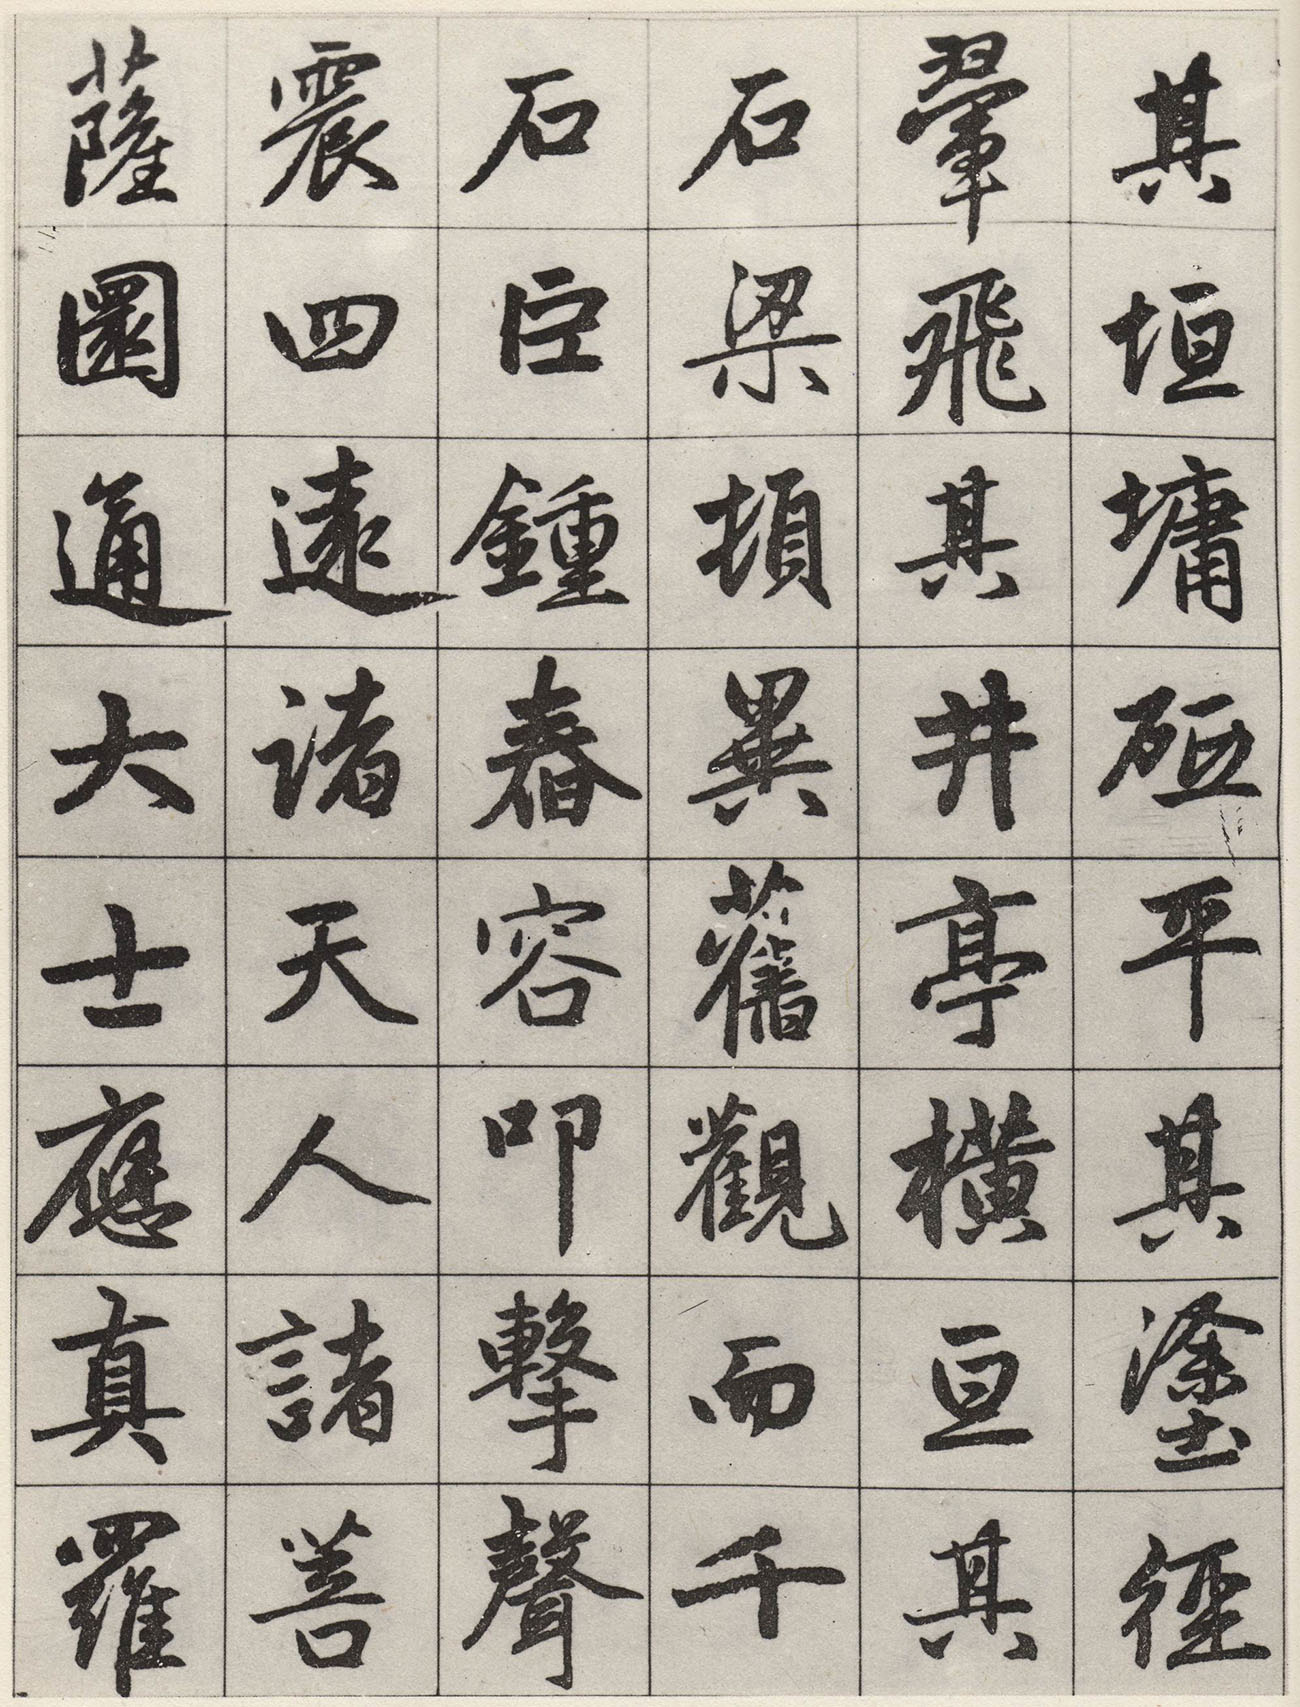 其垣墉砥平其塗徑
翬飛其井亭橫亘其
石梁頓異舊觀而千
石巨鍾舂容叩擊聲
震四遠諸天人諸菩
薩圜通大士應真羅